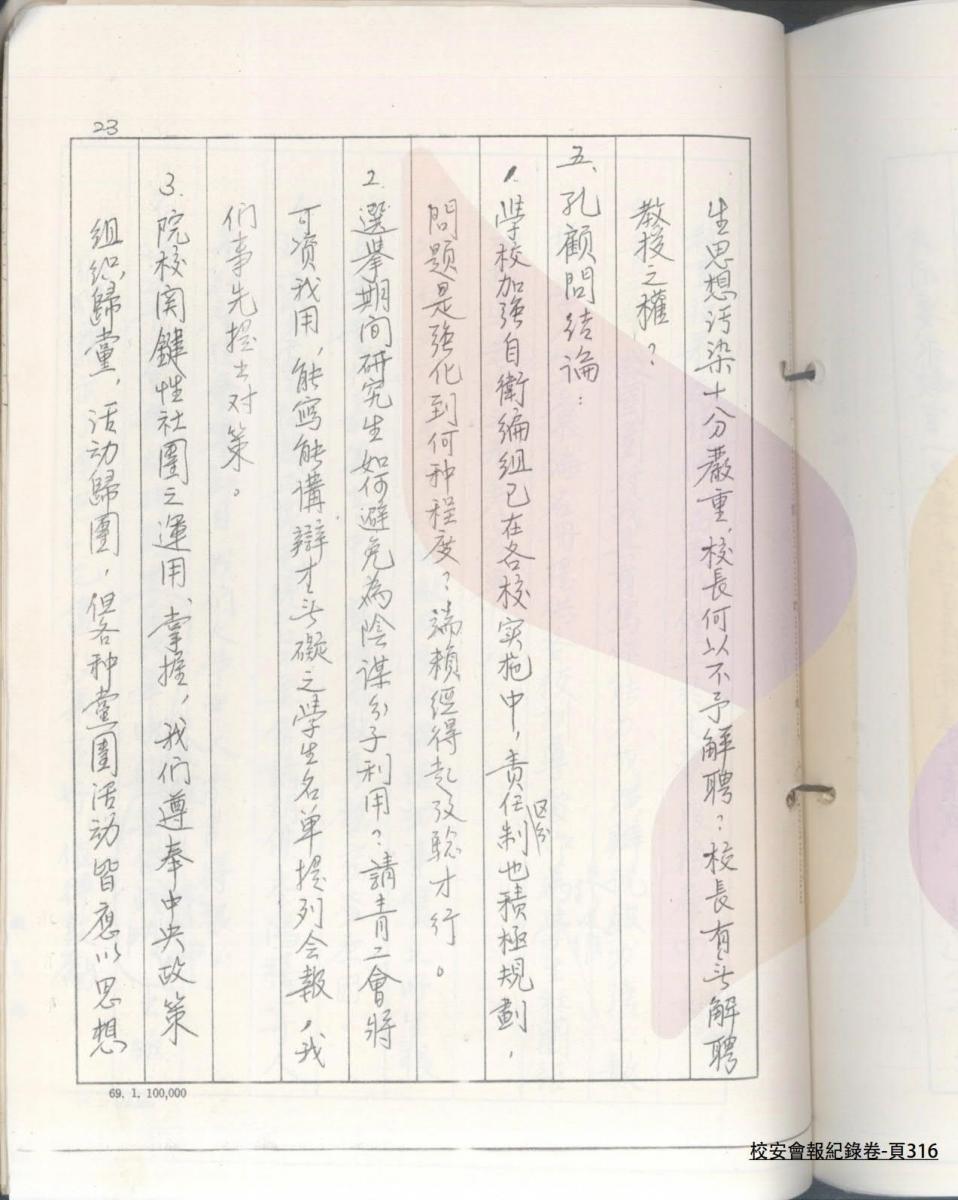 23
生思想污染十分嚴重，校長何以不予解聘？校長有无解聘
教授之權？
五、孔顧問結論：
1. 學校加強自衛編組已在各校实施中，責任区分制也積極規劃，
問題是強化到何种程度？端賴經得起攷驗才行。
2. 選舉期间研究生如何避免為陰謀分子利用？請青工會將
可资我用，能寫能講辯才无礙之學生名单提列会報，我
们事先提出对策。
3. 院校関鍵性社團之運用、掌握，我们遵奉中央政策
組織歸黨，活动歸團，但各种黨團活动皆應以思想
69. 1. 100,000
校安會報紀錄卷-頁316